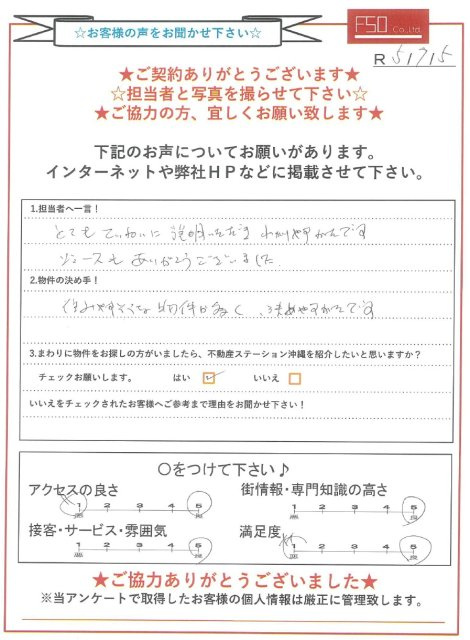 ☆お客様の声をお聞かせ下さい☆
FSO Co.,Ltd.
R 5 1 7 1 5
★ご契約ありがとうございます★
☆担当者と写真を撮らせて下さい☆
★ご協力の方、宜しくお願い致します★
下記のお声についてお願いがあります。
インターネットや弊社HPなどに掲載させて下さい。
1.担当者へ一言！
とてもていねいに説明いただき わかりやすかったです
ジュースも ありがとうございました
2.物件の決め手！
住みやすそうな物件が多く、決めやすかったです
3.まわりに物件をお探しの方がいましたら、不動産ステーション沖縄を紹介したいと思いますか？
チェックお願いします。 はい ☑ いいえ □
いいえをチェックされたお客様へご参考まで理由をお聞かせ下さい！
〇をつけて下さい♪
アクセスの良さ 街情報・専門知識の高さ
1 2 3 4 5 1 2 3 4 5
悪 良 悪 良
接客・サービス・雰囲気 満足度
1 2 3 4 5 1 2 3 4 5
悪 良 悪 良
★ご協力ありがとうございました★
※当アンケートで取得したお客様の個人情報は厳正に管理致します。